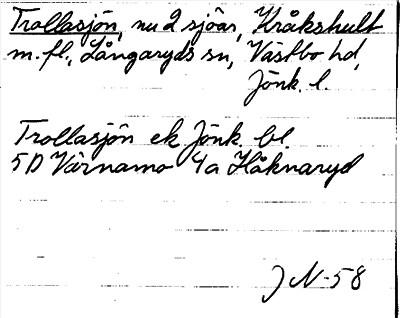 Trollasjön, nu 2 sjöar, Kråkshult
m. fl., Långaryds sn, Västbo hd,
Jönk. l.
Trollasjön ek Jönk. bl.
5D Värnamo 4a Håknaryd
J N-58